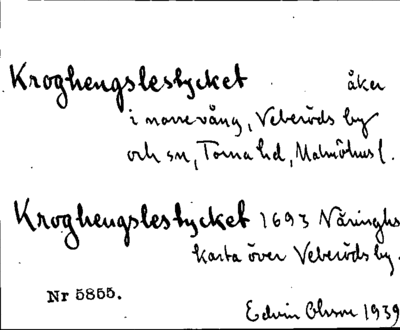 Kroghengslestycket åker
i norrevång, Veberöds by
och sn, Torna hd, Malmöhus l.
Kroghengslestycket 1693 Näringhs
karta över Veberöds by.
Nr 5855.
Edvin Ohlson 1939